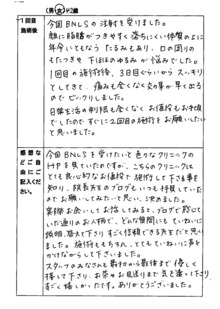 (男・女)42歳
1回目施術後
今回BNLSの注射を受けました。
頬に脂肪がつきやすく落ちにくい体質の上に
年令いともなう たるみもあり、口の周りの
もたつきや 下ほほのゆるみが悩みでした。
1回目の施術後、3日目ぐらいから スッキリ
としてきて、痛みも全くなく効果が早く出る
ので ビックリしました。
日常生活の制限も全くなくお値段もお手頃
でしたので すぐに2回目の施術をお願いしたい
と思いました。
感想などご自由にご記入ください。
今回BNLSを受けたいと色々なクリニックの
HPを見ていたのですが、こちらのクリニックは
とても良心的なお値段で施術して下さる事を
知り、院長先生のブログもいつも拝見していた
のでお願いしてみたいと思い、決めました。
実際お会いしてお話してみると、ブログで感じて
いた通りのお人柄で、どんな質問にも ていねいに
説明、答えて下さり すごく信頼できる先生だと思い
ました。施術はもちろん、とてもていねいに声を
かけながらして下さいました。
スタッフのみなさんも最初から最後まで 優しく
接して下さり、お茶やお見送りまで 気を遣って下さり
すごく嬉しかったです。ありがとうございました。